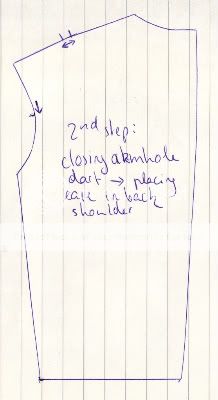 2nd step:
closing armhole
dart → placing
ease in back
shoulder